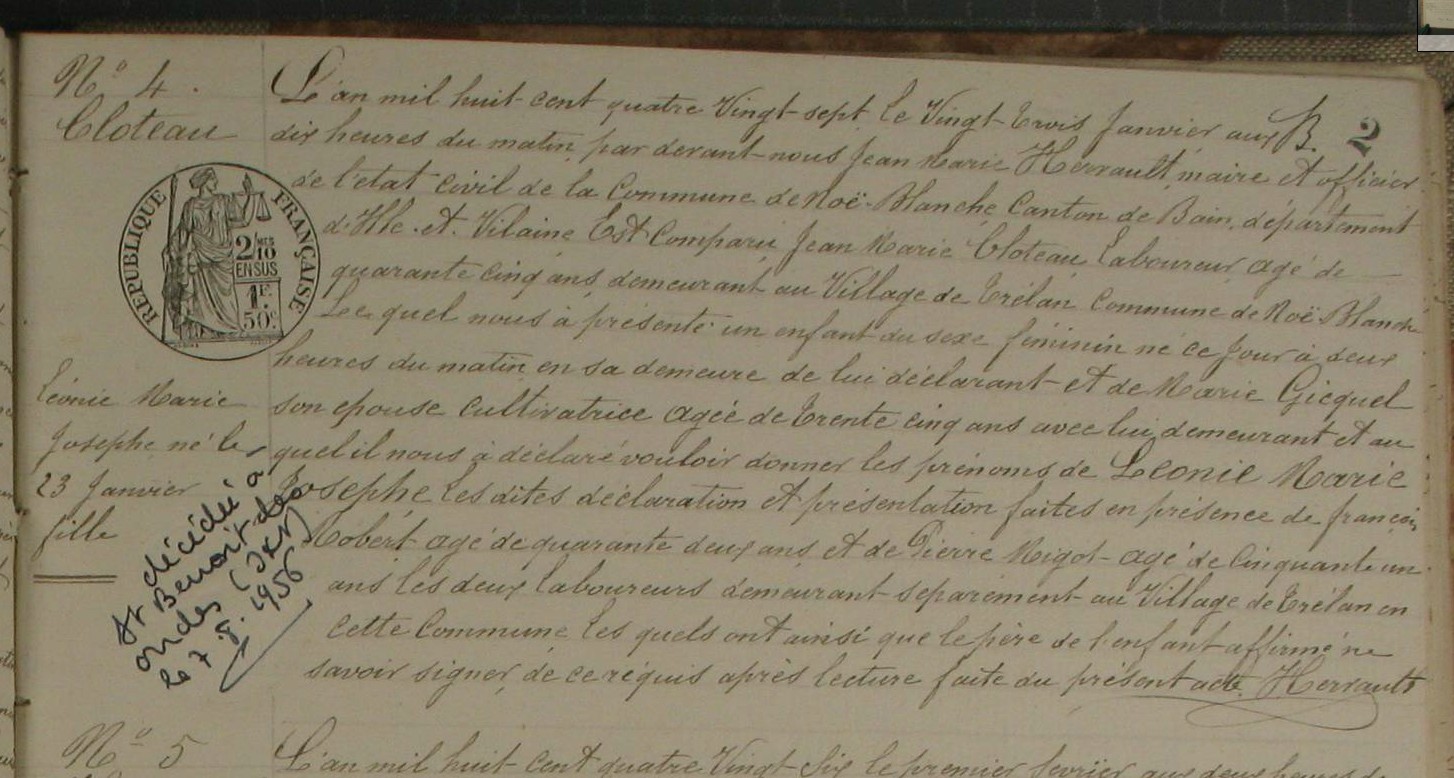 N° 4.
Cloteau
RÉPUBLIQUE FRANÇAISE
2/10 MES
EN SUS
1F.
50c
Léonie Marie
Josephe né le
23 Janvier
fille
décédée a
St Benoit des
ondes (I&V)
le 7.8.1956
B. 2
L'an mil huit cent quatre Vingt-sept le Vingt-trois Janvier aux
dix heures du matin par devant-nous Jean Marie Herrault maire et officier
de l'etat civil de la Commune de Noë-Blanche Canton de Bain, département
d'Ille.et.Vilaine Est Comparu Jean Marie Cloteau Laboureur agé de
quarante cinq ans demeurant au Village de Trélan commune de Noë Blanche
Le quel nous à présenté un enfant du sexe féminin né ce Jour à deux
heures du matin en sa demeure de lui déclarant et de Marie Gicquel
son epouse cultivatrice agée de trente cinq ans avec lui demeurant et au
quel il nous à déclaré vouloir donner les prénoms de Léonie Marie
Josephe les dites déclaration et présentation faites en présence de françois
Robert agé de quarante deux ans et de Pierre Rigot agé de Cinquante un
ans les deux laboureurs demeurant separément au Village de Trélan en
cette Commune les quels ont ainsi que le père de l'enfant affirmé ne
savoir signer de ce réquis après lecture faite du présent acte. Herrault
N° 5
L'an mil huit cent quatre Vingt Six le premier fevrier aux deux heures